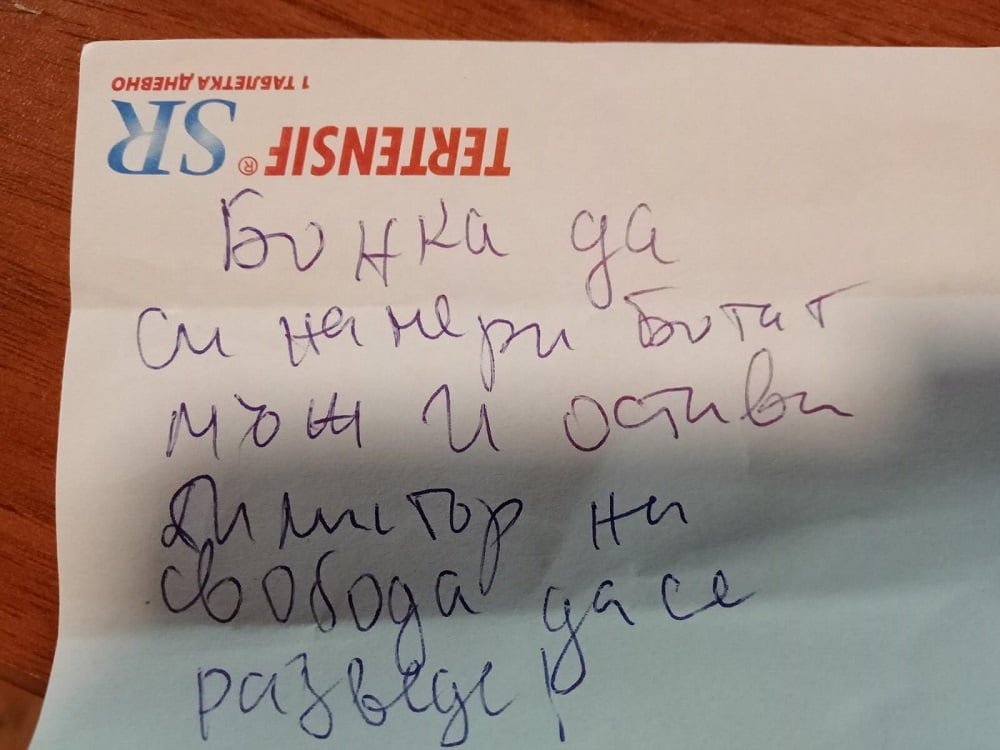 1 ТАБЛЕТКА ДНЕВНО
TERTENSIF® SR
Бонка да
си намери богат
мъж и остави
Димитър на
свобода да се
разведе